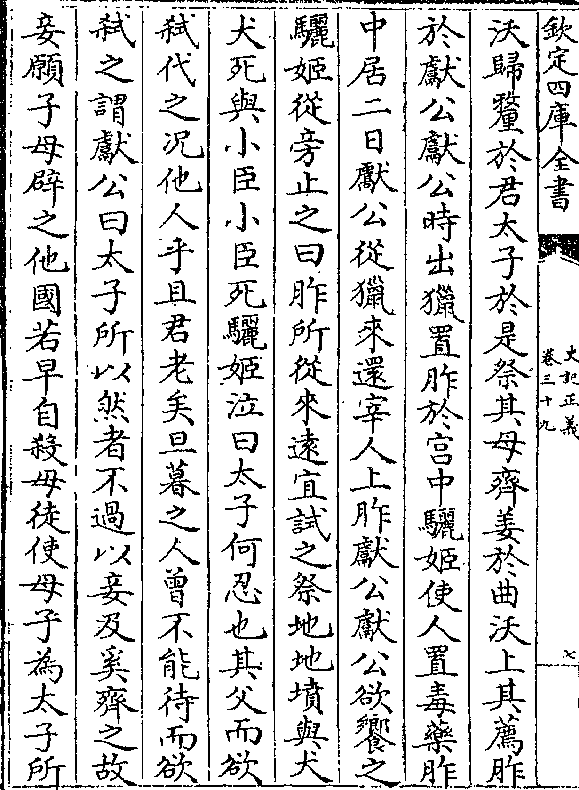 欽定四庫全書
史記正義
卷三十九
七
沃歸釐於君太子於是祭其母齊姜於曲沃上其薦胙
於獻公獻公時出獵置胙於宫中驪姬使人置毒藥胙
中居二日獻公從獵來還宰人上胙獻公獻公欲饗之
驪姬從旁止之曰胙所從來遠宜試之祭地地墳與犬
犬死與小臣小臣死驪姬泣曰太子何忍也其父而欲
弑代之况他人乎且君老矣旦暮之人曾不能待而欲
弑之謂獻公曰太子所以然者不過以妾及奚齊之故
妾願子母辟之他國若早自殺母徒使母子為太子所